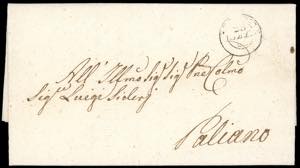 All' Illmo Sig^r Sig^r Pne Colmo
Sig^r Luigi
Paliano